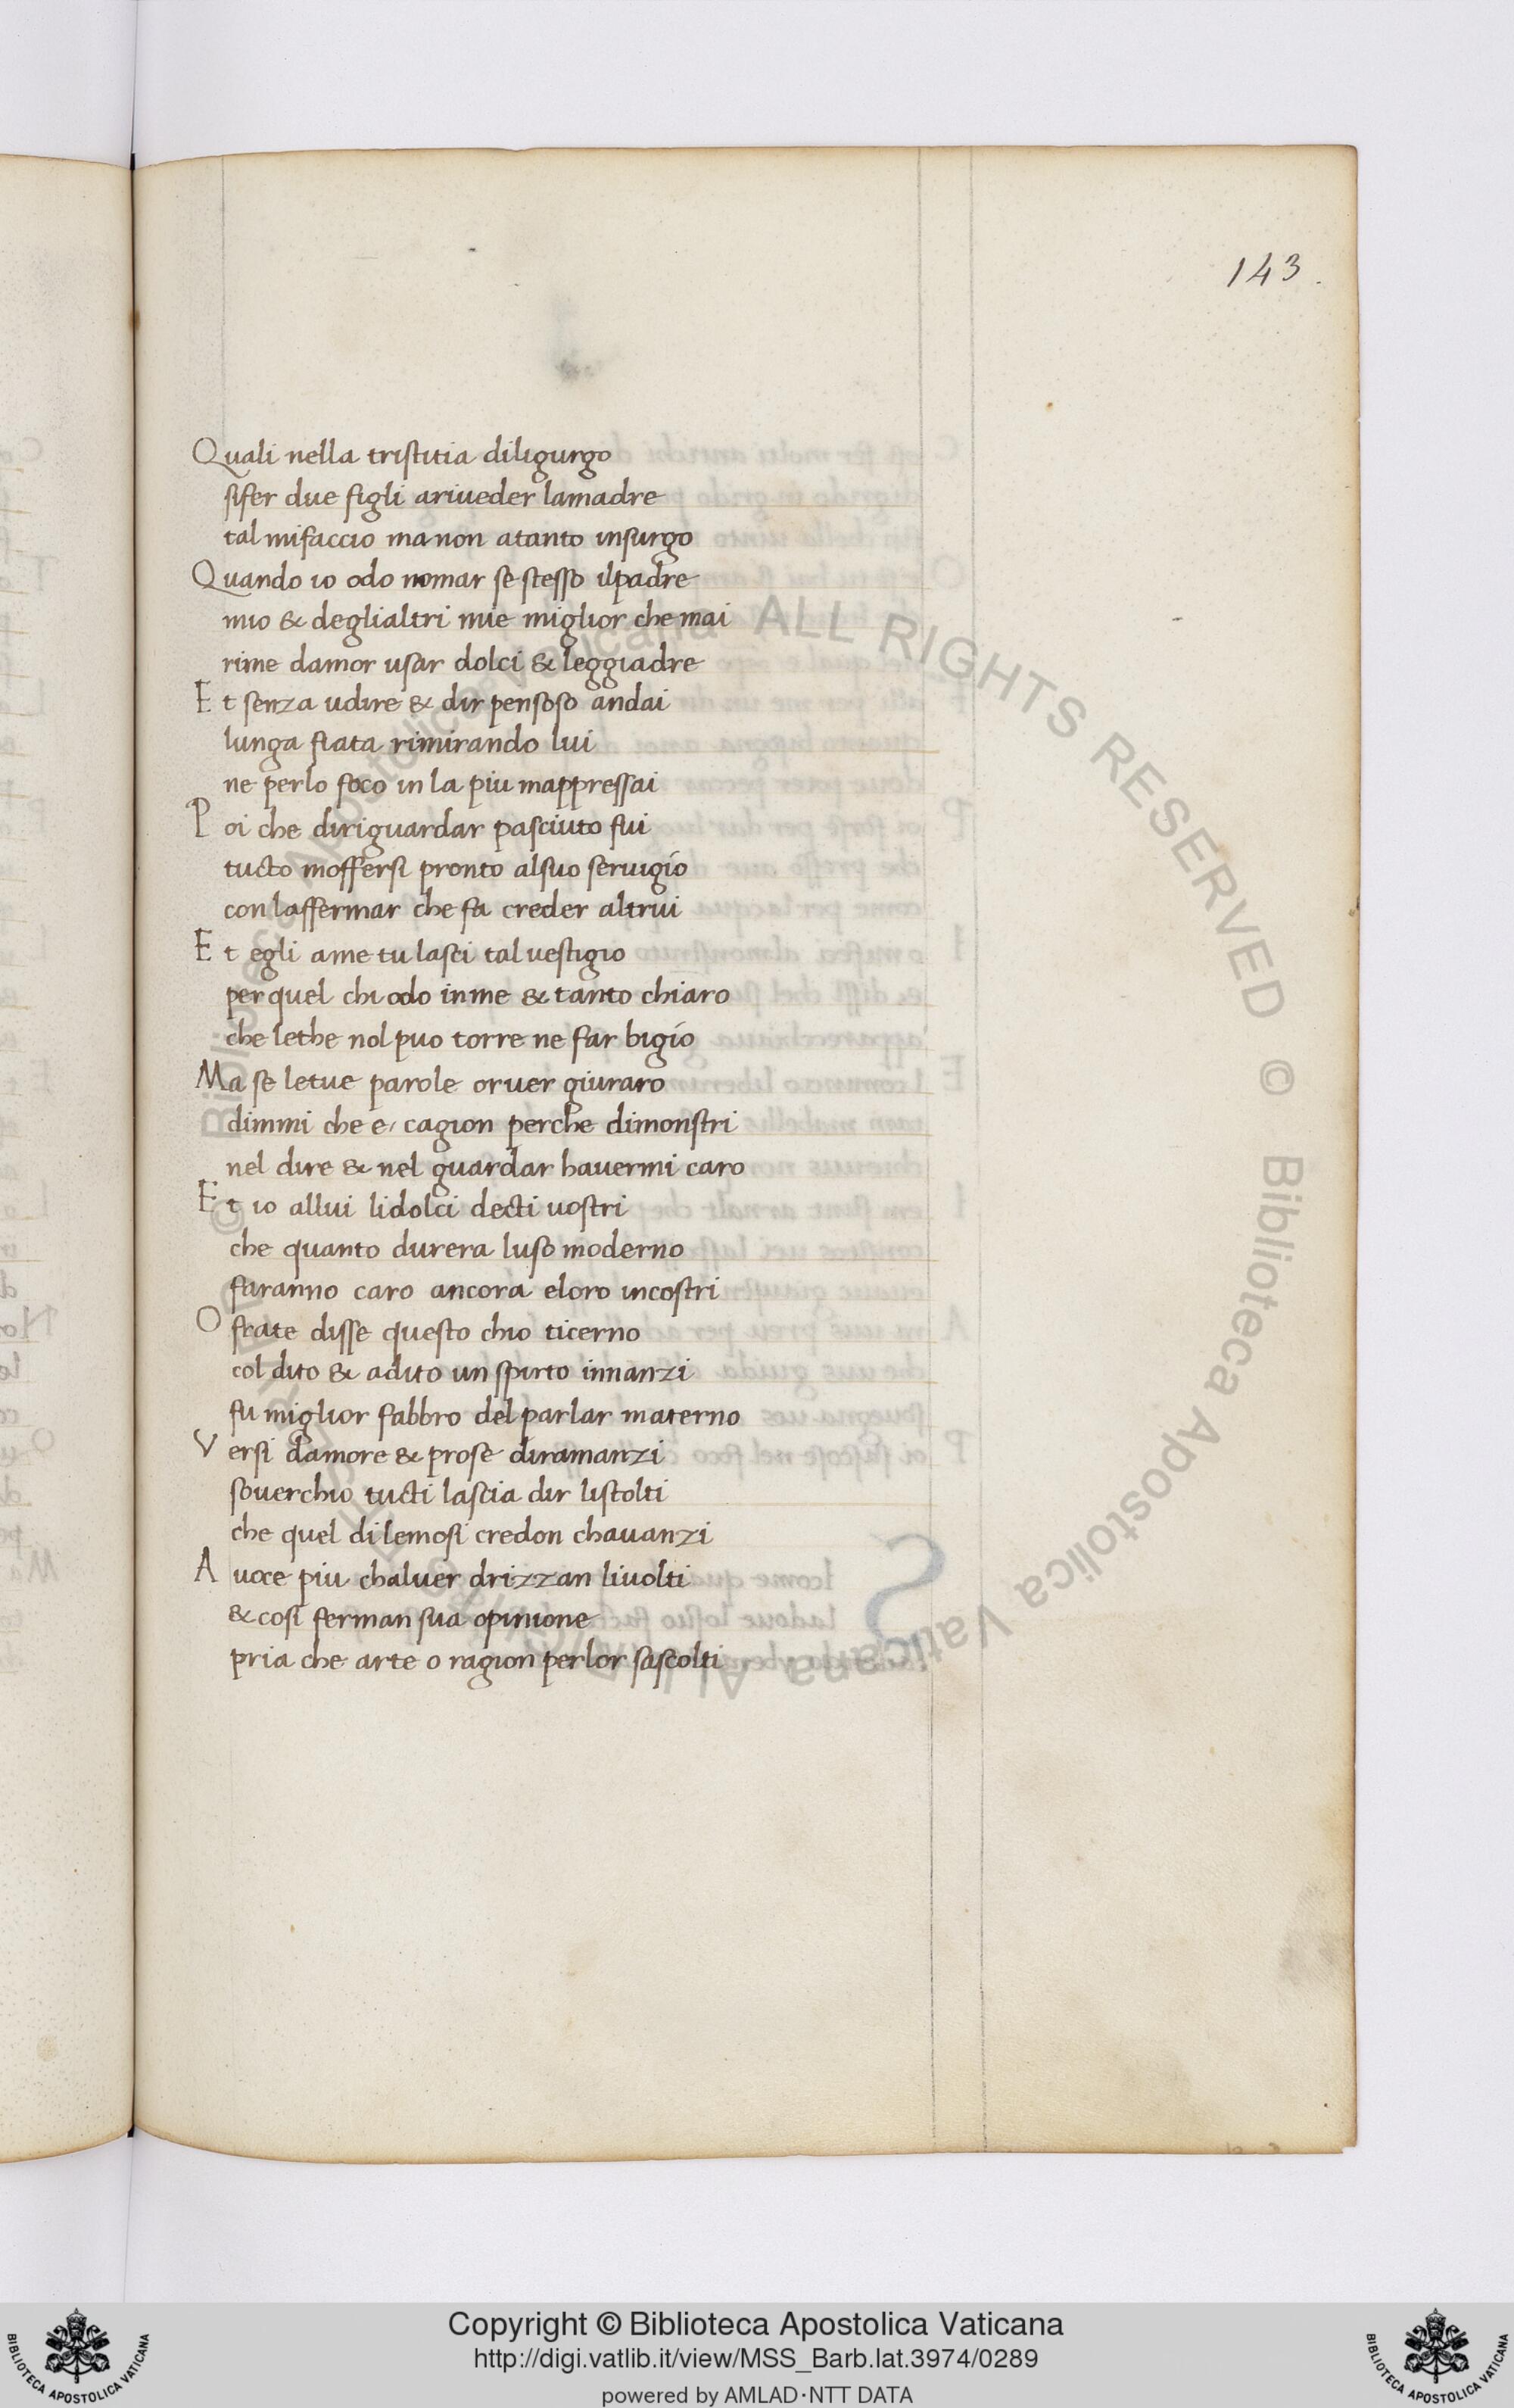 143.
Quali nella tristitia diligurgo
sifer due figli ariueder lamadre
tal mifaccio ma non atanto insurgo
Quando io odo nomar se stesso ilpadre
mio & deglialtri mie miglior che mai
rime damor usar dolci & leggiadre
Et senza udire & dir pensoso andai
lunga fiata rimirando lui
ne perlo foco in la piu mappressai
Poi che diriguardar pasciuto fui
tucto moffersi pronto alsuo seruigio
con laffermar che fa creder altrui
Et egli ame tu lasci tal uestigio
per quel chi odo inme & tanto chiaro
che lethe nol puo torre ne far bigio
Ma se letue parole oruer giuraro
dimmi che e, cagion perche dimonstri
nel dire & nel guardar hauermi caro
Et io allui lidolci decti uostri
che quanto durera luso moderno
faranno caro ancora eloro incostri
O frate disse questo chio ticerno
col dito & adito un spirto innanzi
fu miglior fabbro del parlar materno
Versi damore & prose diramanzi
souerchio tucti lascia dir listolti
che quel dilemosi credon chauanzi
A uoce piu chaluer drizzan liuolti
& cosi ferman sua opinione
pria che arte o ragion perlor sascolti
© Biblioteca Apostolica Vaticana ALL RIGHTS RESERVED © Biblioteca Apostolica Vaticana ALL RIGHTS RESERVED
Copyright © Biblioteca Apostolica Vaticana
http://digi.vatlib.it/view/MSS_Barb.lat.3974/0289
powered by AMLAD·NTT DATA
BIBLIOTECA APOSTOLICA VATICANA
BIBLIOTECA APOSTOLICA VATICANA